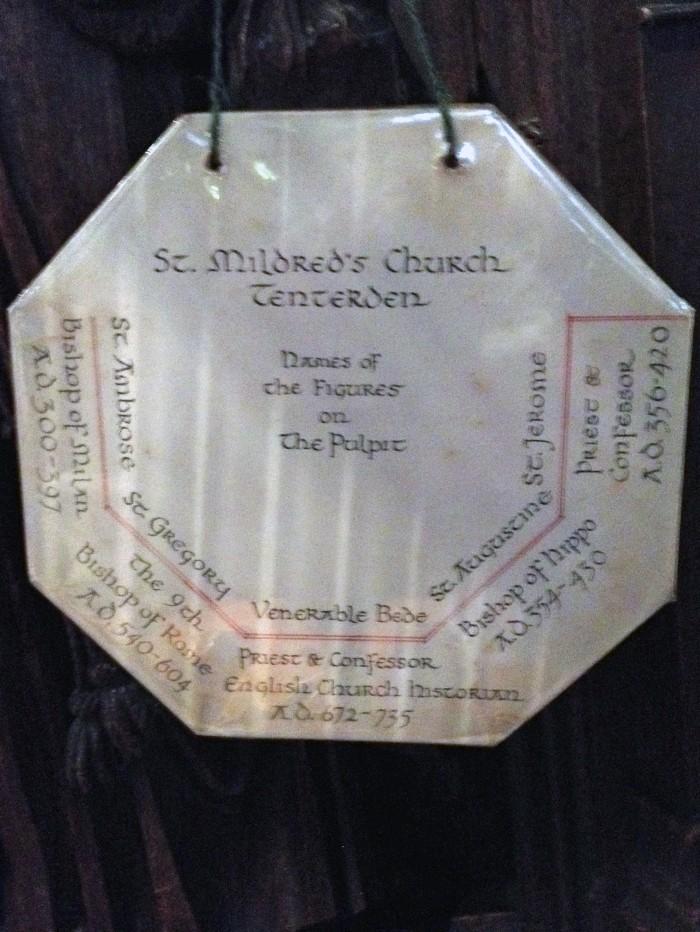 St. Mildred's Church
Tenterden
Names of
the Figures
on
The Pulpit
St. Ambrose
Bishop of Milan
A.D. 300-397
St Gregory
The 9th
Bishop of Rome
A.D. 540-604
Venerable Bede
Priest & Confessor
English Church Historian
A.D. 672-735
St. Augustine
Bishop of Hippo
A.D. 354-430
St. Jerome
Priest &
Confessor
A.D. 356-420